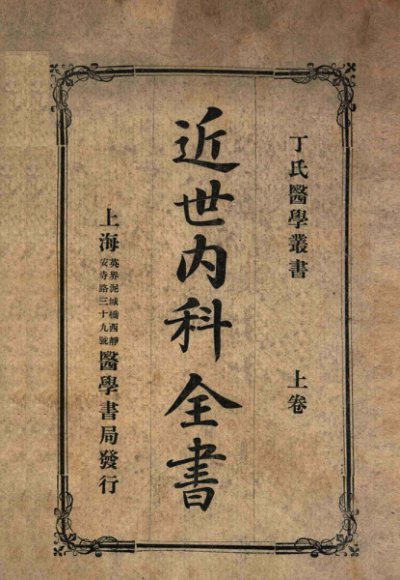 丁氏醫學叢書
上卷
近世内科全書
上海
英界泥城橋西靜
安寺路三十九號
醫學書局發行